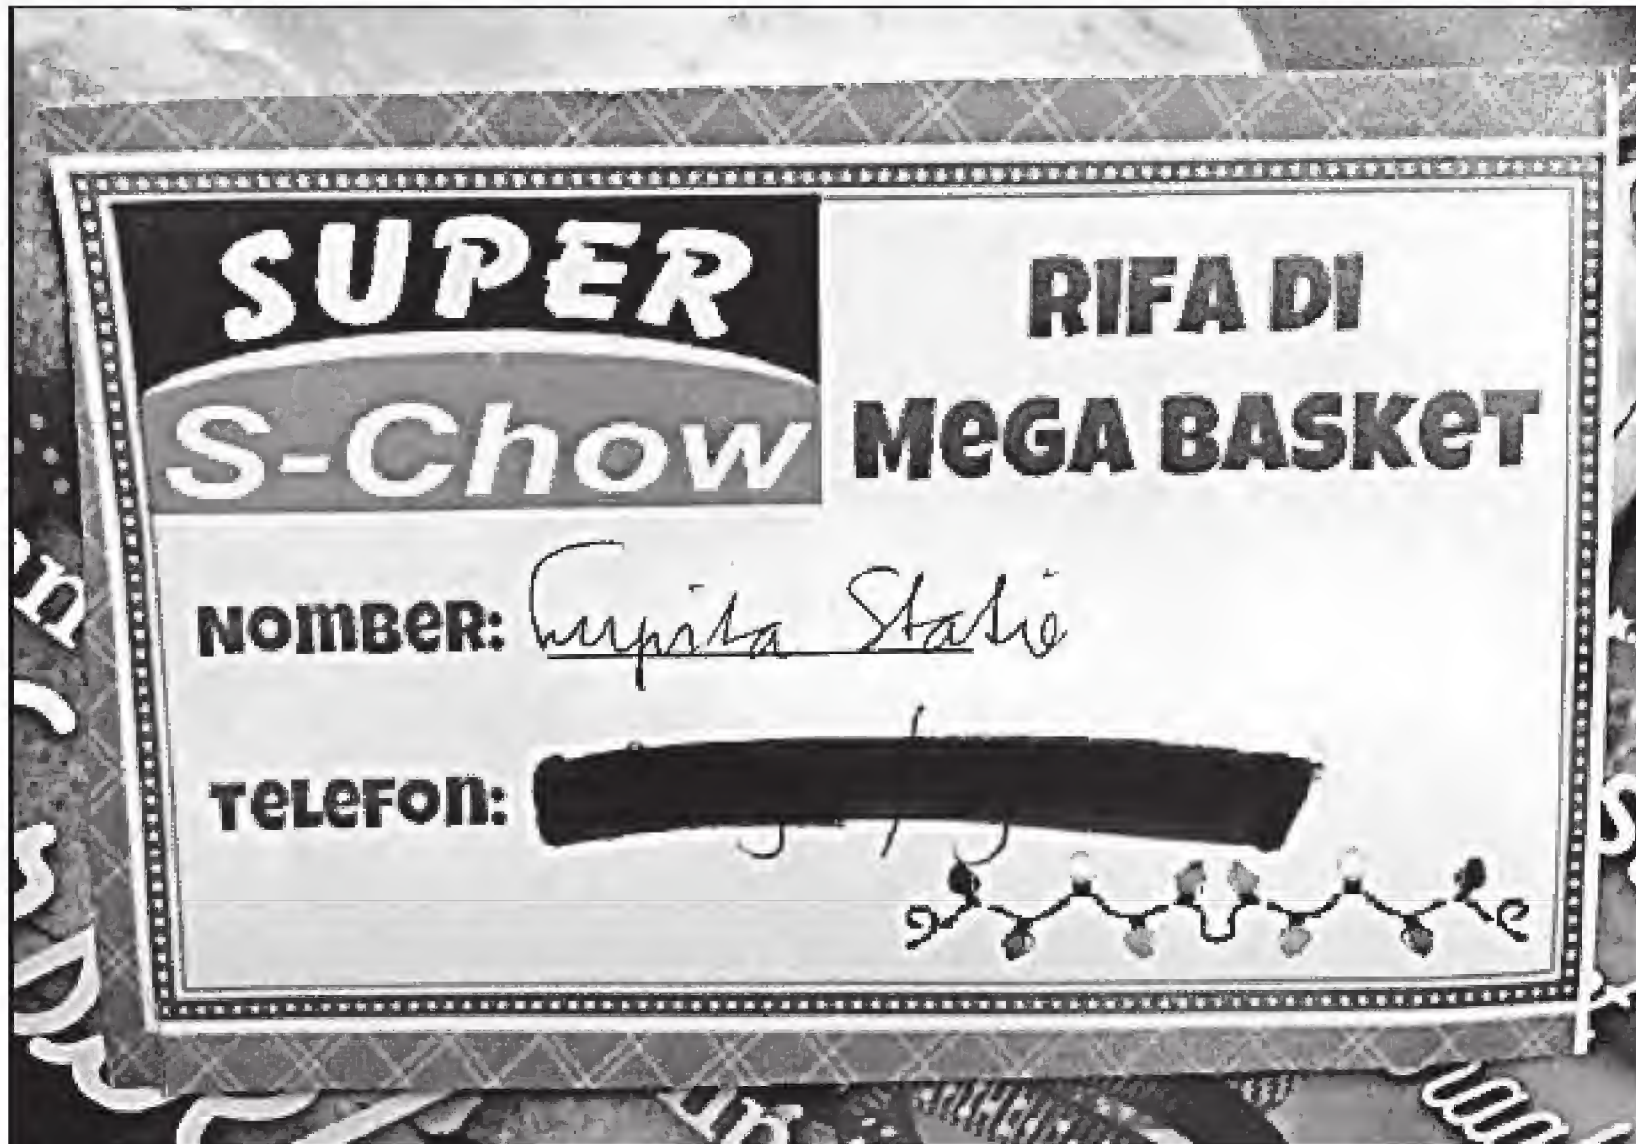 SUPER
S-Chow
RIFA DI
MEGA BASKET
NOMBER: Statie
TELEFON: